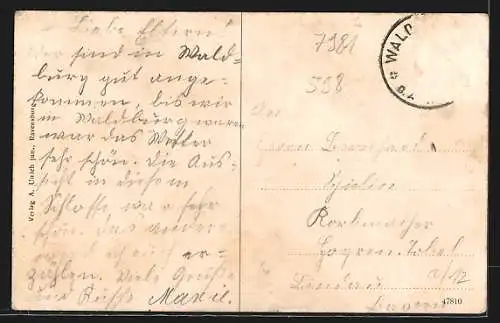 Liebe Eltern!
Wir sind in Wald=
burg gut ange=
kommen, bis wir
in Waldburg waren
war das Wetter
sehr schön. Die Aus=
sicht in diesem
Schlosse war sehr
schön. Das andere
ich euch er=
zählen. Viele Grüße
und Küsse Marie.
Verlag A. Ulrich jun., Ravensburg
7981
598
WALD
An
Korbmacher
a/12
Lindau
Bayern
47810